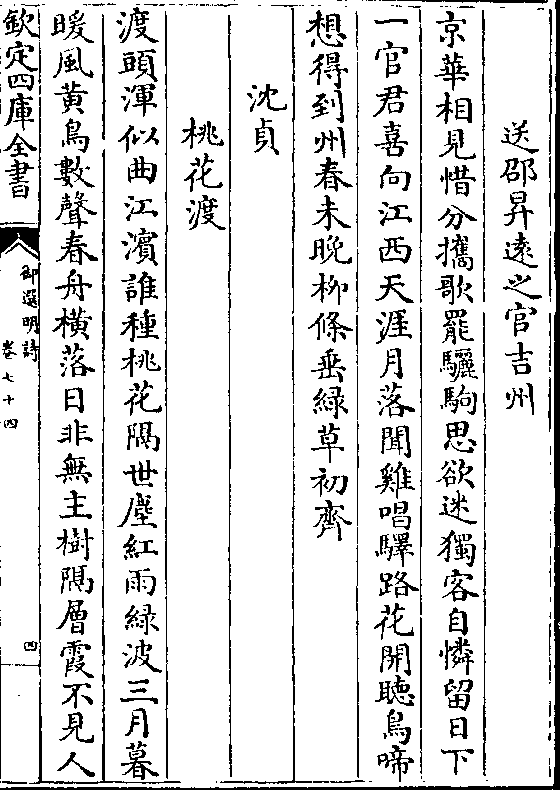 送邵昇遠之官吉州
京華相見惜分攜歌罷驪駒思欲迷獨客自憐留日下
一官君喜向江西天涯月落聞雞唱驛路花開聽鳥啼
想得到州春未晩柳條垂綠草初齊
沈貞
桃花渡
渡頭渾似曲江濱誰種桃花隔世塵紅雨綠波三月暮
暖風黃鳥數聲春舟橫落日非無主樹隔層霞不見人
欽定四庫全書
御選明詩
卷七十四
四